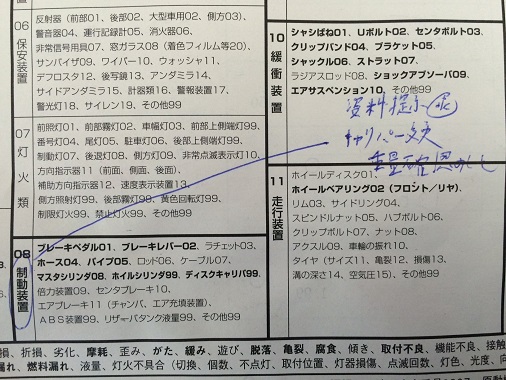 06 保安装置
反射器（前部01、後部02、大型車用02、側方03）、
警音器04、運行記録計05、消火器06、
非常信号用具07、窓ガラス08（着色フィルム等20）、
サンバイザ09、ワイパー10、ウォッシャ11、
デフロスタ12、後写鏡13、アンダミラ14、
サイドアンダミラ15、計器類16、警報装置17、
警光灯18、サイレン19、その他99
07 灯火類
前照灯01、前部霧灯02、車幅灯03、前部上側端灯99、
番号灯04、尾灯05、駐車灯06、後部上側端灯99、
制動灯07、後退灯08、側方灯09、非常点滅表示灯10、
方向指示器11（前面、側面、後面）、
補助方向指示器12、速度表示装置13、
側方照射灯99、後部霧灯99、黄色回転灯99、
制限灯火99、禁止灯火99、その他99
08 制動装置
ブレーキペダル01、ブレーキレバー02、ラチェット03、
ホース04、パイプ05、ロッド06、ケーブル07、
マスタシリンダ08、ホイルシリンダ99、ディスクキャリパ99、
倍力装置09、センタブレーキ10、
エアブレーキ11（チャンバ、エア充填装置）、
ABS装置99、リザーバタンク液量99、その他99
10 緩衝装置
シャシばね01、Uボルト02、センタボルト03、
クリップバンド04、ブラケット05、
シャックル06、ストラット07、
ラジアスロッド08、ショックアブソーバ09、
エアサスペンション10、その他99
資料提示
キャリパー
11 走行装置
ホイールディスク01、
ホイールベアリング02（フロント／リヤ）、
リム03、サイドリング04、
スピンドルナット05、ハブボルト06、
クリップボルト07、ナット08、
アクスル09、車輪の振れ10、
タイヤ（サイズ11、亀裂12、損傷13、
溝の深さ14、空気圧15）、その他99
損、折損、劣化、摩耗、歪み、がた、緩み、遊び、脱落、亀裂、腐食、傾き、取付不良、機能不良、接触
漏れ、燃料漏れ、液量、灯火不具合（切換、個数、不点灯、取付位置、灯器損傷、点滅回数、灯色、光度、向